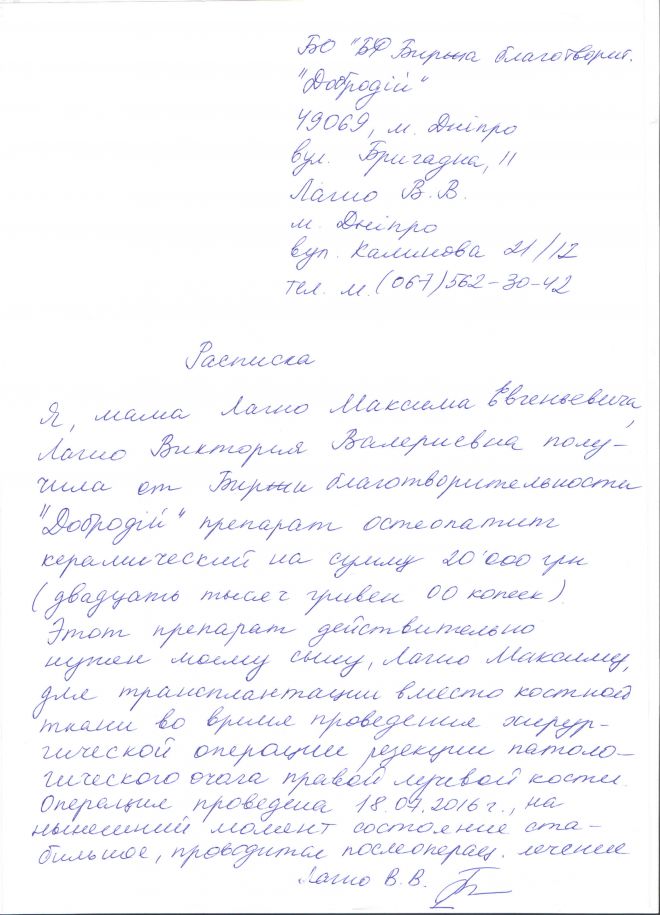 БО "БФ Биржа благотворит.
"Добродій"
49069, м. Дніпро
вул. Бригадна, 11
Лагно В.В.
м. Дніпро
вул. Калинова 21/12
тел. м. (067) 562-30-42
Расписка
Я, мама Лагно Максима Євгеньевича,
Лагно Виктория Валериевна полу-
чила от Биржи благотворительности
"Добродій" препарат остеопатит
керамический на сумму 20'000 грн
(двадцать тысяч гривен 00 копеек).
Этот препарат действительно
нужен моему сыну, Лагно Максиму,
для трансплантации вместо костной
ткани во время проведения хирур-
гической операции резекции патоло-
гического очага правой лучевой кости.
Операция проведена 18.07.2016 г., на
нынешний момент состояние ста-
бильное, проводится послеоперац. лечение
Лагно В.В.